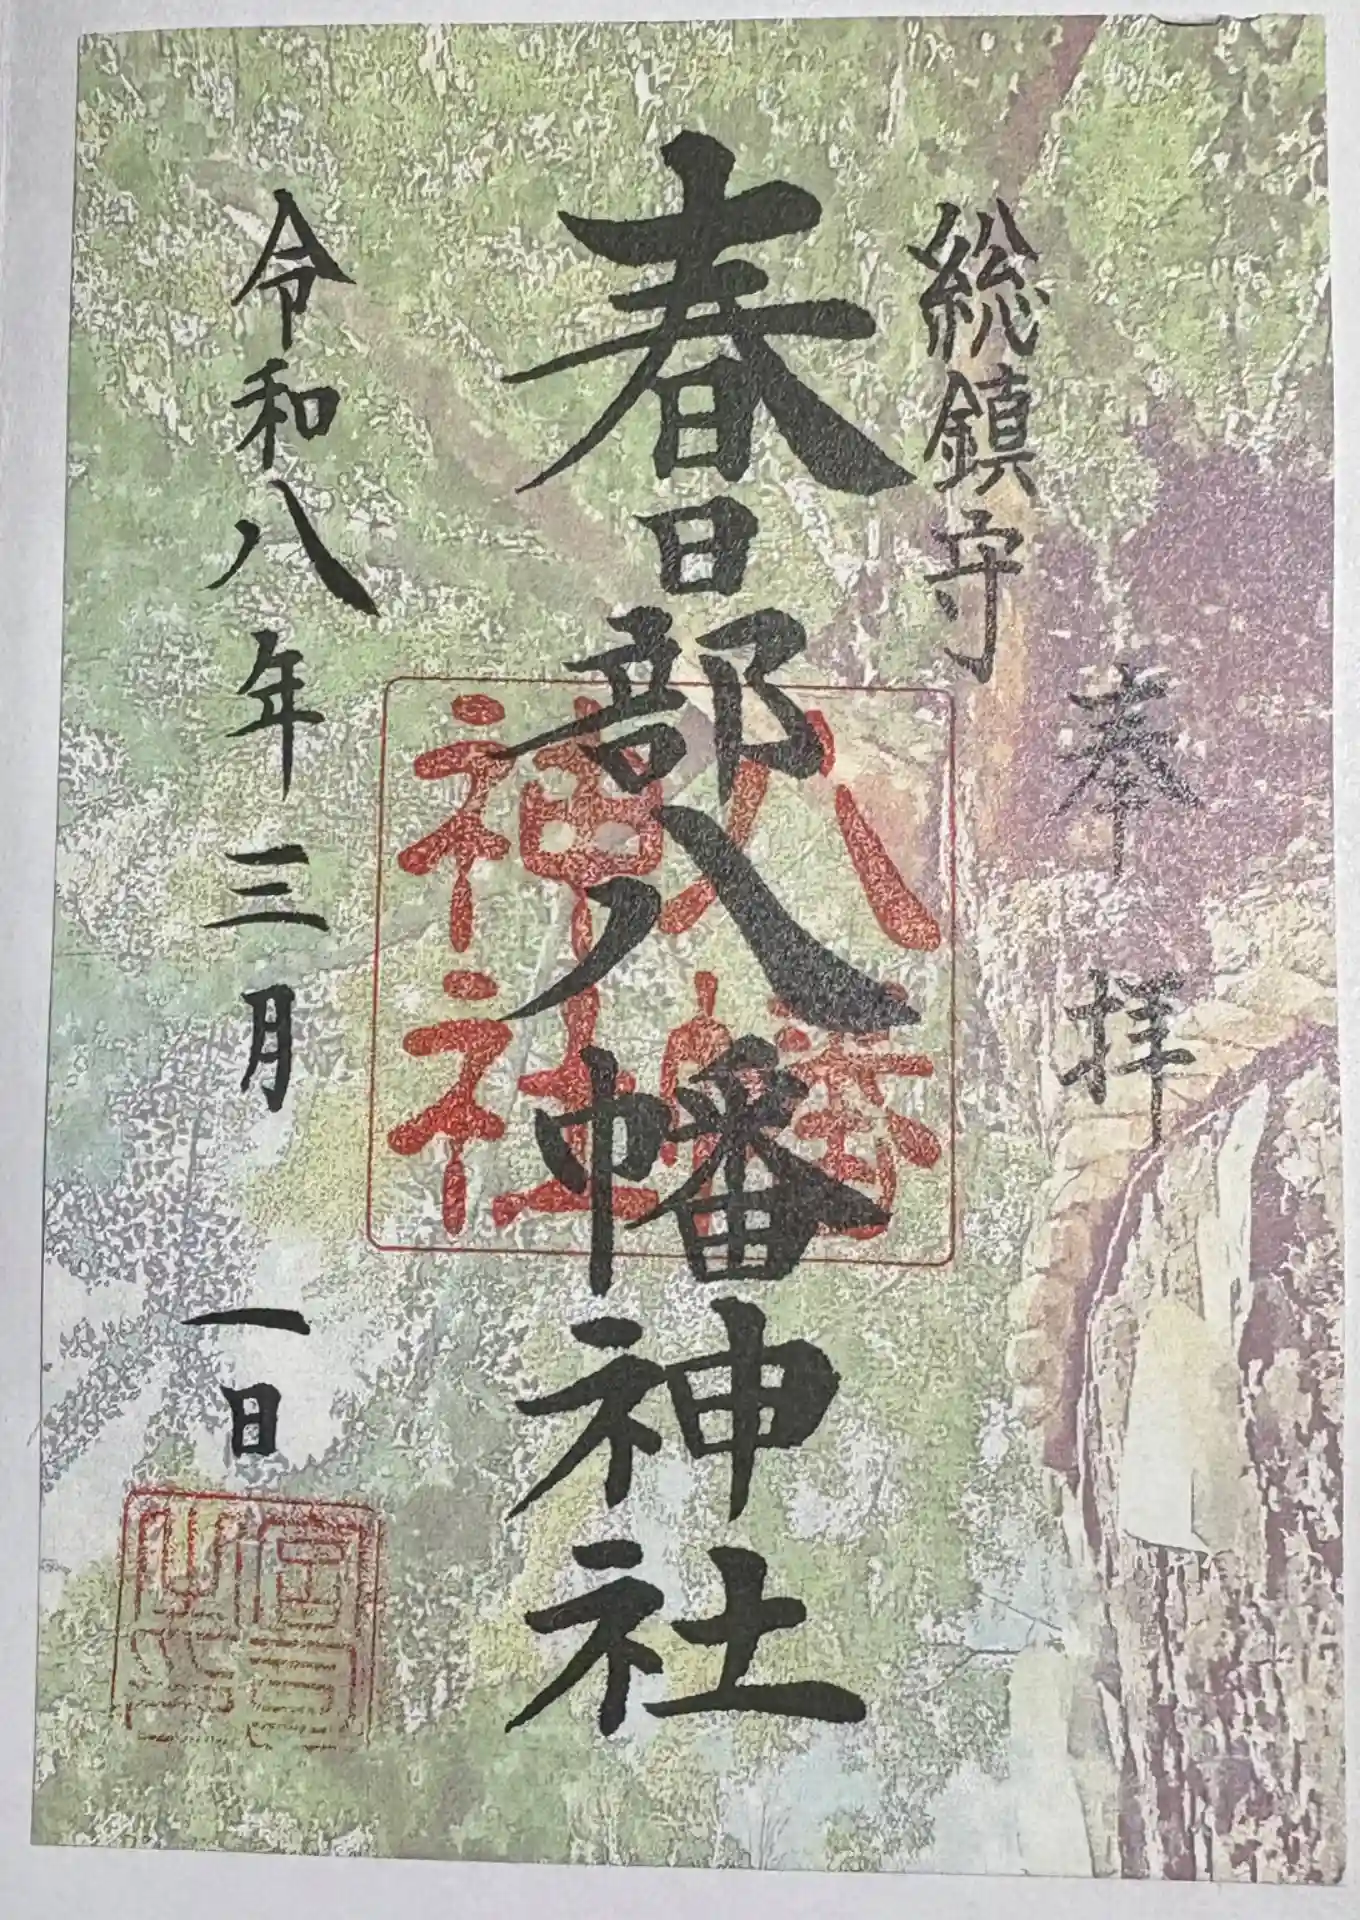 奉拝
総鎮守
春日部八幡神社
八幡
神社
令和八年三月一日
宮司
之印